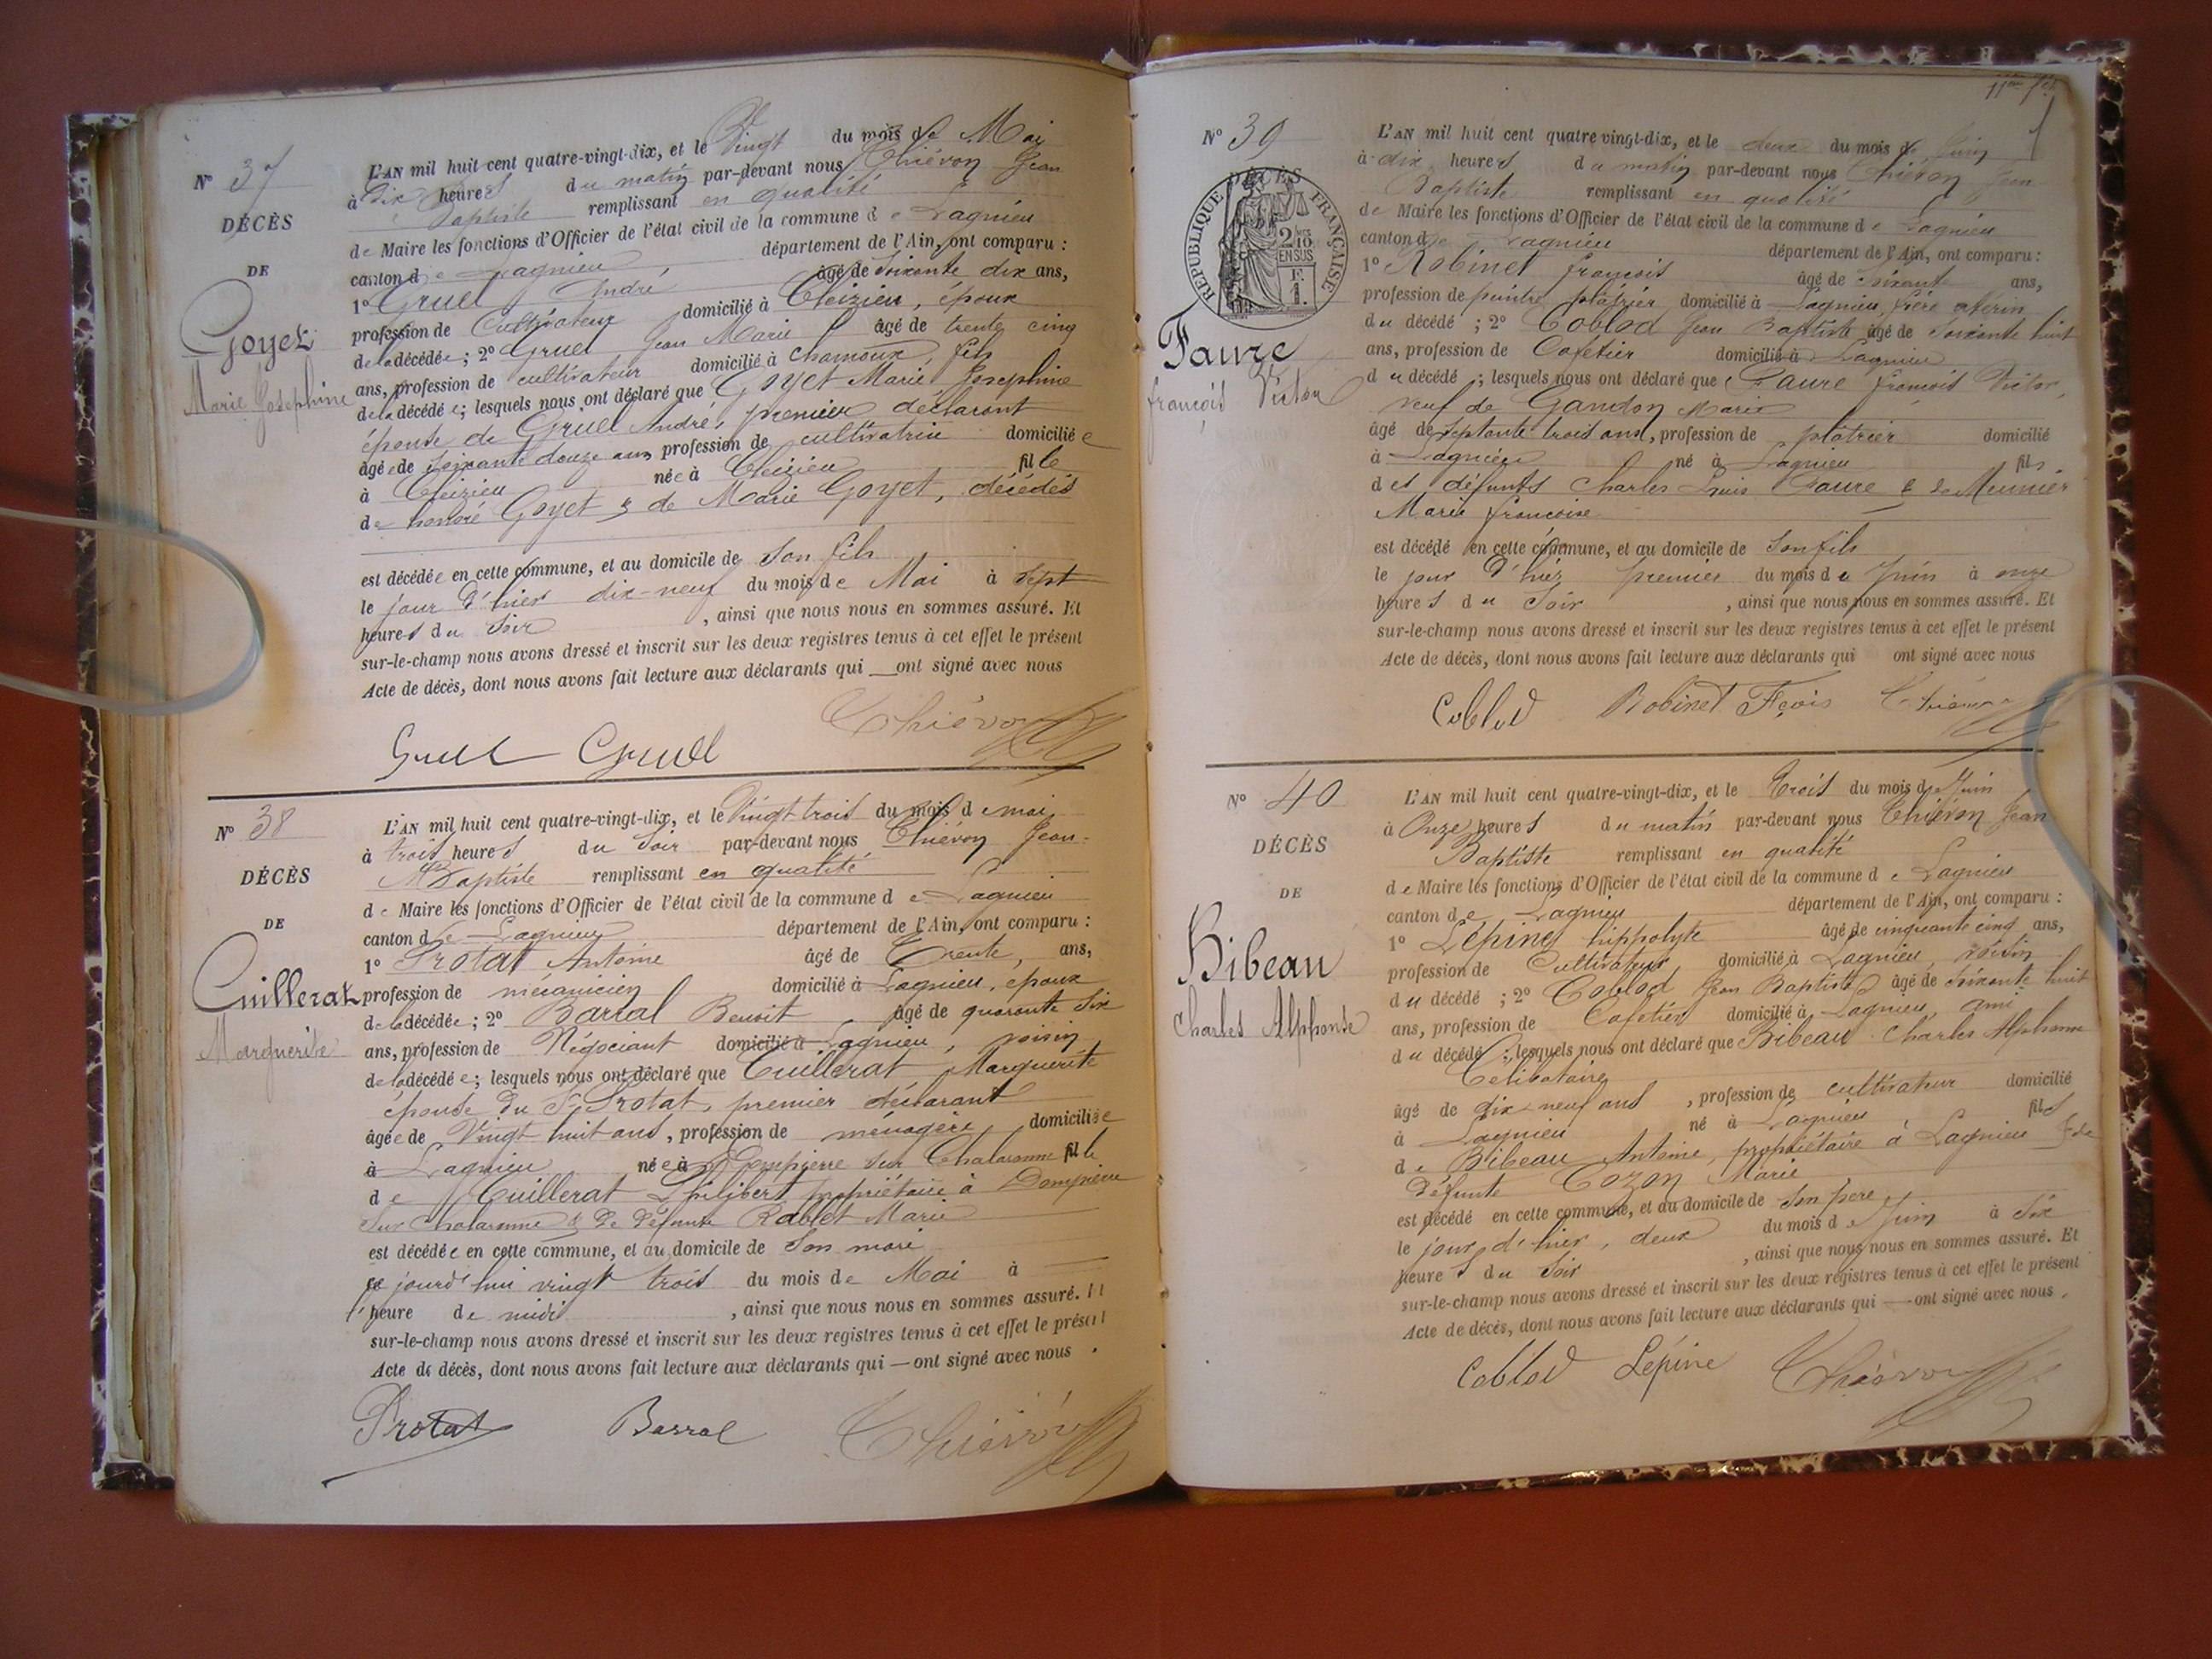 N° 37
DÉCÈS
DE
Goyet
Marie Josephine
L'AN mil huit cent quatre-vingt-dix, et le Vingt du mois de Mai
à dix heures du matin par-devant nous Chiévon Jean
Baptiste remplissant en qualité
de Maire les fonctions d'Officier de l'état civil de la commune de Lagnieu
canton de Lagnieu département de l'Ain, ont comparu :
1° Gruel André âgé de soixante dix ans,
profession de Cultivateur domicilié à Cleizieu, époux
de la décédée ; 2° Gruel Jean Marie âgé de trente cinq
ans, profession de cultivateur domicilié à chamoux, fils
de la décédée ; lesquels nous ont déclaré que Goyet Marie Josephine
épouse de Gruel André, premier déclarant
âgée de soixante douze ans profession de cultivatrice domiciliée
à Cleizieu née à Cleizieu fille
de honoré Goyet & de Marie Goyet, décédés
est décédée en cette commune, et au domicile de son fils
le jour d'hier dix-neuf du mois de Mai à sept
heures du soir , ainsi que nous nous en sommes assuré. Et
sur-le-champ nous avons dressé et inscrit sur les deux registres tenus à cet effet le présent
Acte de décès, dont nous avons fait lecture aux déclarants qui ont signé avec nous
Gruel Gruel Chiévon
N° 38
DÉCÈS
DE
Cuillerat
Marguerite
L'AN mil huit cent quatre-vingt-dix, et le Vingt trois du mois de mai
à trois heures du soir par-devant nous Chiévon Jean-
Baptiste remplissant en qualité
de Maire les fonctions d'Officier de l'état civil de la commune de Lagnieu
canton de Lagnieu département de l'Ain, ont comparu :
1° Protat Antoine âgé de Trente, ans,
profession de mécanicien domicilié à Lagnieu, époux
de la décédée ; 2° Barral Benoit âgé de quarante six
ans, profession de Négociant domicilié à Lagnieu, voisin
de la décédée ; lesquels nous ont déclaré que Cuillerat Marguerite
épouse du Sr Protat, premier déclarant
âgée de Vingt huit ans, profession de ménagère domiciliée
à Lagnieu née à Dompierre sur Chalaronne fille
de Cuillerat Philibert propriétaire à Dompierre
sur Chalaronne & de défunte Rablet Marie
est décédée en cette commune, et au domicile de son mari
ce jourd'hui vingt trois du mois de Mai à
l'heure de midi , ainsi que nous nous en sommes assuré. Et
sur-le-champ nous avons dressé et inscrit sur les deux registres tenus à cet effet le présent
Acte de décès, dont nous avons fait lecture aux déclarants qui — ont signé avec nous.
Protat Barral Chiévon
N° 39
RÉPUBLIQUE FRANÇAISE
DÉCÈS
2/10 EN SUS
F. 1.
Faure
françois Victor
L'AN mil huit cent quatre vingt-dix, et le deux du mois de Juin
à dix heures du matin par-devant nous Chiévon Jean
Baptiste remplissant en qualité
de Maire les fonctions d'Officier de l'état civil de la commune de Lagnieu
canton de Lagnieu département de l'Ain, ont comparu :
1° Robinet françois âgé de soixante ans,
profession de peintre plâtrier domicilié à Lagnieu, frère utérin
du décédé ; 2° Coblod Jean Baptiste âgé de soixante huit
ans, profession de Cafetier domicilié à Lagnieu
du décédé ; lesquels nous ont déclaré que Faure françois Victor,
veuf de Gandon Marie
âgé de septante trois ans, profession de plâtrier domicilié
à Lagnieu né à Lagnieu fils
des défunts Charles Louis Faure & de Meunier
Marie francoise
est décédé en cette commune, et au domicile de son fils
le jour d'hier premier du mois de Juin à onze
heures du soir , ainsi que nous nous en sommes assuré. Et
sur-le-champ nous avons dressé et inscrit sur les deux registres tenus à cet effet le présent
Acte de décès, dont nous avons fait lecture aux déclarants qui ont signé avec nous
Coblod Robinet Fçois Chiévon
N° 40
DÉCÈS
DE
Bibeau
Charles Alphonse
L'AN mil huit cent quatre-vingt-dix, et le trois du mois de Juin
à Onze heures du matin par-devant nous Chiévon Jean
Baptiste remplissant en qualité
de Maire les fonctions d'Officier de l'état civil de la commune de Lagnieu
canton de Lagnieu département de l'Ain, ont comparu :
1° Lépine hippolyte âgé de cinquante cinq ans,
profession de Cultivateur domicilié à Lagnieu, voisin
du décédé ; 2° Coblod Jean Baptiste âgé de soixante huit
ans, profession de Cafetier domicilié à Lagnieu, ami
du décédé ; lesquels nous ont déclaré que Bibeau Charles Alphonse
Célibataire
âgé de dix-neuf ans , profession de cultivateur domicilié
à Lagnieu né à Lagnieu fils
de Bibeau Antoine, propriétaire à Lagnieu & de
défunte Cozon Marie
est décédé en cette commune, et au domicile de son père
le jour d'hier, deux du mois de Juin à six
heures du soir , ainsi que nous nous en sommes assuré. Et
sur-le-champ nous avons dressé et inscrit sur les deux registres tenus à cet effet le présent
Acte de décès, dont nous avons fait lecture aux déclarants qui — ont signé avec nous.
Coblod Lépine Chiévon